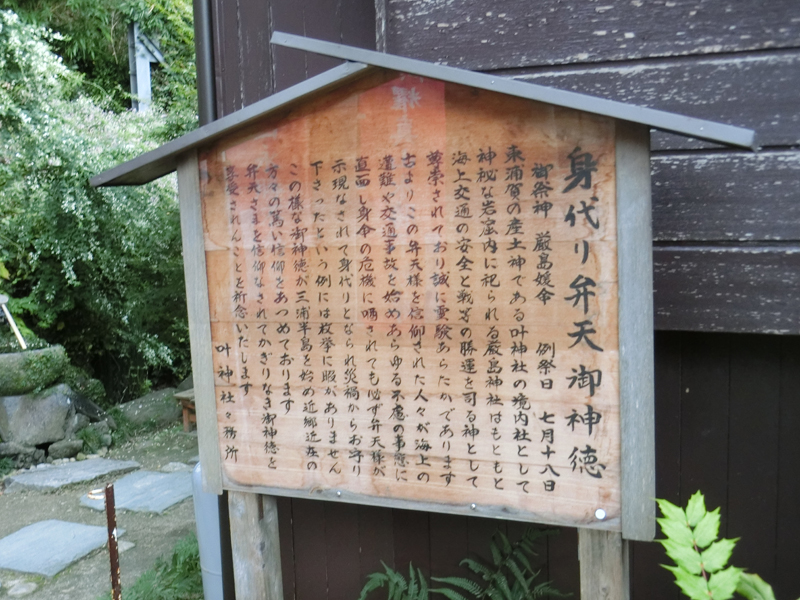 身代り弁天御神徳
御祭神 厳島媛命 例祭日 七月十八日
東浦賀の産土神である叶神社の境内社として
神秘な岩窟内に祀られる厳島神社はもともと
海上交通の安全と戦等の勝運を司る神として
尊崇されており誠に霊験あらたかであります
古よりこの弁天様を信仰された人々が海上の
遭難や交通事故を始めあらゆる不慮の事態に
直面し身命の危機に晒されても必ず弁天様が
示現なされて身代りとなられ災禍からお守り
下さったという例には枚挙に暇がありません
この様な御神徳が三浦半島を始め近郷近在の
方々の篤い信仰をあつめております
弁天さまを信仰なされてかぎりなき御神徳を
享受されんことを祈念いたします
叶神社々務所